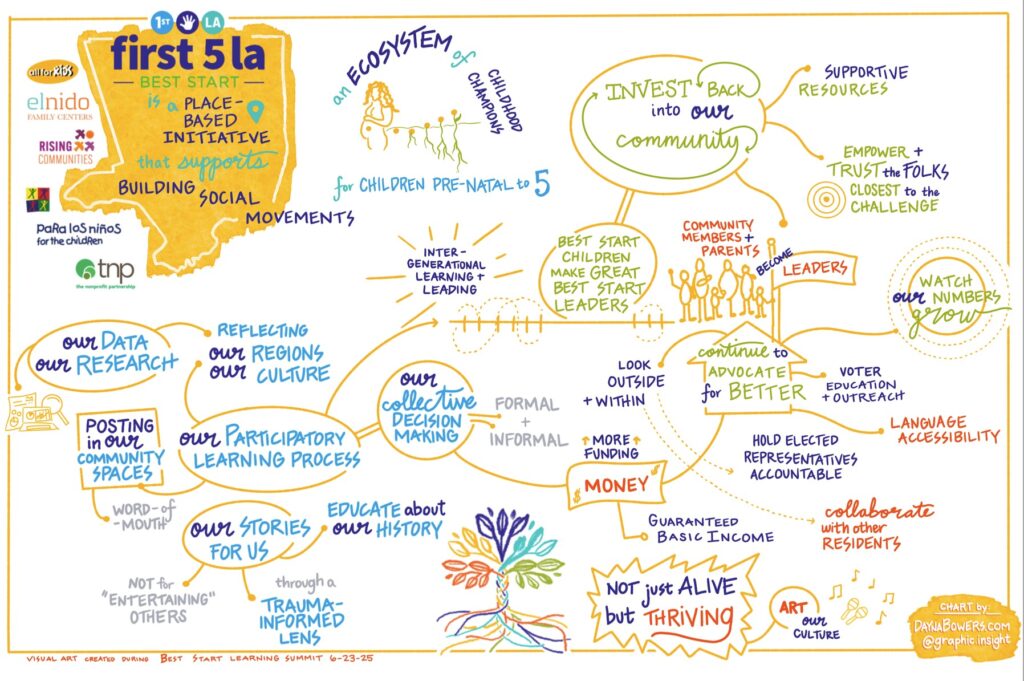 1ST
LA
first 5 la
BEST START
is a PLACE-
BASED
INITIATIVE
that supports
BUILDING SOCIAL
MOVEMENTS
all for kids
elnido
FAMILY CENTERS
RISING
COMMUNITIES
para los niños
for the children
tnp
the nonprofit partnership
an ECOSYSTEM of
CHILDHOOD
CHAMPIONS
for CHILDREN PRE-NATAL to 5
INVEST BACK
into our
community
SUPPORTIVE
RESOURCES
EMPOWER +
TRUST the FOLKS
CLOSEST to the
CHALLENGE
INTER-
GENERATIONAL
LEARNING +
LEADING
BEST START
CHILDREN
MAKE GREAT
BEST START
LEADERS
COMMUNITY
MEMBERS +
PARENTS
BECOME
LEADERS
WATCH
our NUMBERS
grow
our DATA
our RESEARCH
REFLECTING
our REGIONS
our CULTURE
our
collective
DECISION
MAKING
FORMAL
+
INFORMAL
LOOK
OUTSIDE
+ WITHIN
continue to
ADVOCATE
for BETTER
VOTER
EDUCATION
+ OUTREACH
LANGUAGE
ACCESSIBILITY
HOLD ELECTED
REPRESENTATIVES
ACCOUNTABLE
collaborate
with other
RESIDENTS
POSTING
in our
COMMUNITY
SPACES
our PARTICIPATORY
LEARNING PROCESS
WORD-of
-MOUTH
MORE
FUNDING
$ MONEY $
GUARANTEED
BASIC INCOME
our STORIES
FOR US
EDUCATE about
our HISTORY
NOT for
"ENTERTAINING"
OTHERS
through a
TRAUMA-
INFORMED
LENS
NOT just ALIVE
but THRIVING
ART
our
CULTURE
CHART by:
DAYNABOWERS.com
@graphic insight
VISUAL ART CREATED DURING BEST START LEARNING SUMMIT 6-23-25